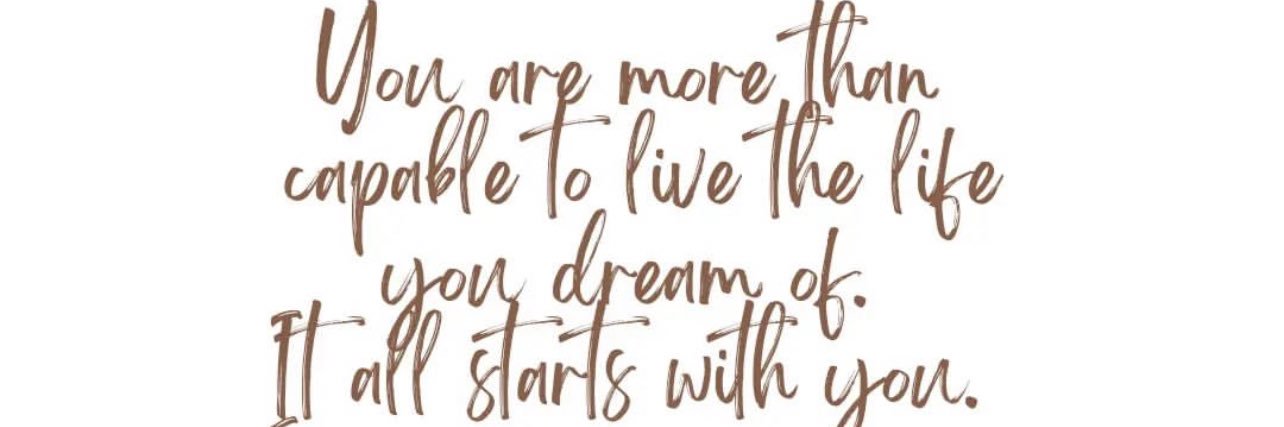 You are more than
capable to live the life
you dream of.
It all starts with you.